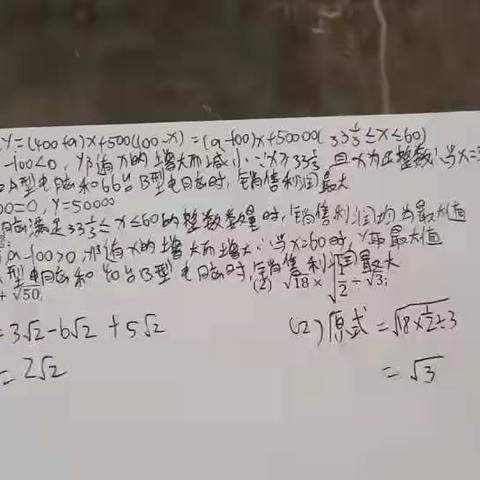 Y=(400+a)x+500(100-x)=(a-100)x+50000(33⅓≤x≤60)
-100<0, Y随x的增大而减小∵x≥33⅓ 且x为正整数∴当x=3
A型电脑和66台B型电脑时,销售利润最大
00=0,Y=50000
满足33⅓≤x≤60的整数数量时,销售利润均为最大值
a-100>0,Y随x的增大而增大∴当x=60时,Y取最大值
型电脑和40台B型电脑时,销售利润最大
+√50. (2) √18×√1/2÷√3;
=3√2-6√2+5√2 (2)原式=√18×1/2÷3
=2√2 =√3